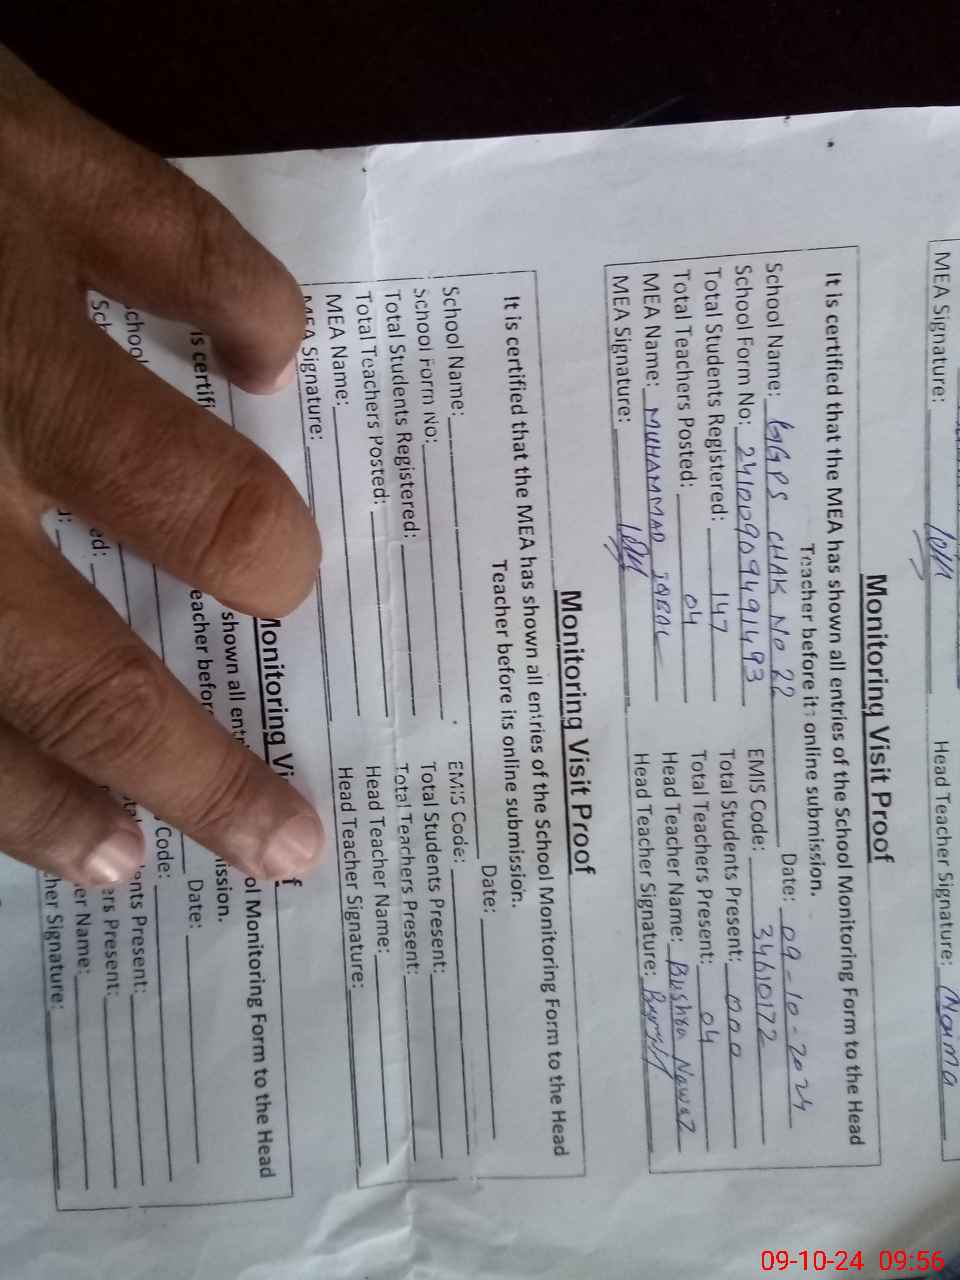 MEA Signature:
Head Teacher Signature: Naima
Monitoring Visit Proof
It is certified that the MEA has shown all entries of the School Monitoring Form to the Head
Teacher before its online submission.
School Name: GGPS CHAK No 22 Date: 09-10-2024
School Form No: EMIS Code: 34610172
Total Students Registered: 147 Total Students Present: 000
Total Teachers Posted: 04 Total Teachers Present: 04
MEA Name: MUHAMMAD IQBAL Head Teacher Name: Bushra Nawaz
MEA Signature: Head Teacher Signature:
Monitoring Visit Proof
It is certified that the MEA has shown all entries of the School Monitoring Form to the Head
Teacher before its online submission.
School Name: Date:
School Form No: EMIS Code:
Total Students Registered: Total Students Present:
Total Teachers Posted: Total Teachers Present:
MEA Name: Head Teacher Name:
MEA Signature: Head Teacher Signature:
Monitoring
is certifi shown all ol Monitoring Form to the Head
eacher ission.
Date:
Code:
ents Present:
ers Present:
er Name:
cher Signature:
09-10-24 09:56